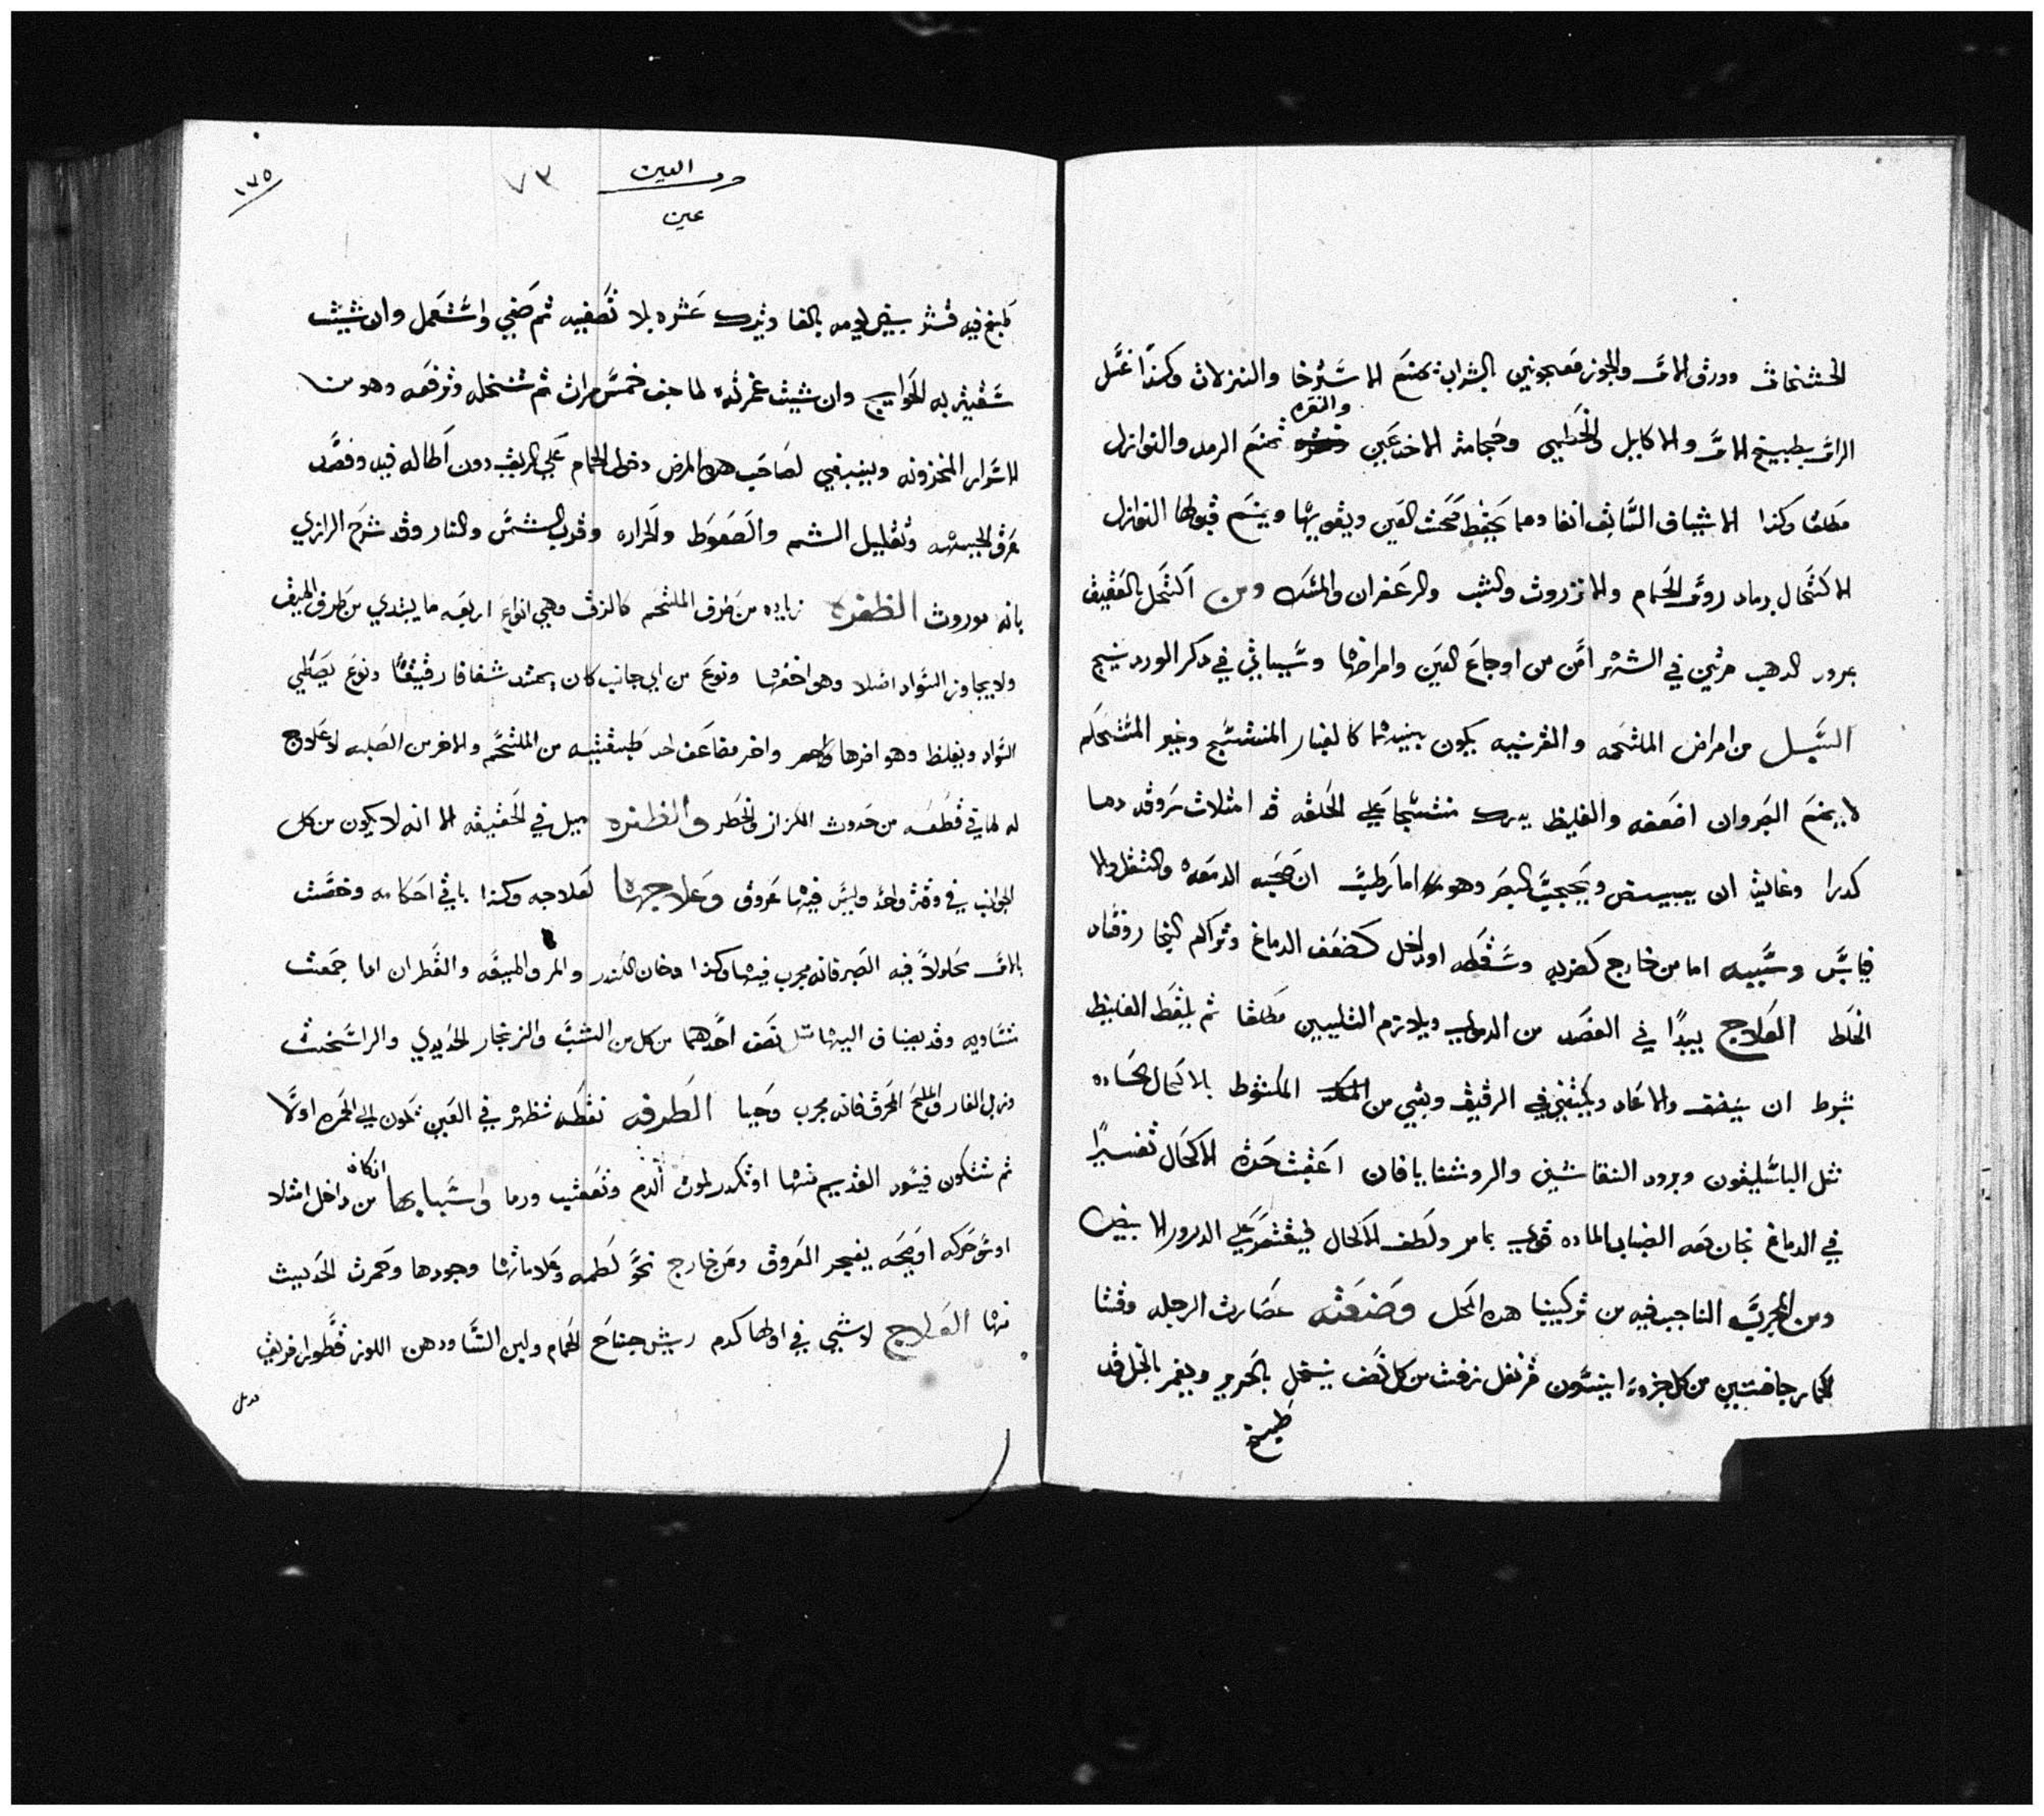 الخشخاش وورق الاس والجوز معجونين بالشراب تمنع الاسترخا والنزلات وكذا غسل
والنقره
الراس بطبيخ الاس والاكليل والخطمي وحجامة الاخدعين تمنع الرمد والنوازل
مطلقا وكذا الاشياف السابف انفا ومما يحفظ صحت العين ويقويها ويمنع قبولها النوازل
الاكتحال برماد روس الحمام والانزروت والشب والزعفران والمسك ومن اكتحل بالعقيق
بمرود الدهب مرتين في الشهر امن من اوجاع العين وامراضها وسياتي في دكر الورد ينج
السبل من امراض الملتحمه والقرنيه يكون بينهما كالغبار المنتسج وغير المستحكم
لا يمنع البصر وان اضعفه والغليظ يدرك منتسجا علي الحدقه قد امتلات عروقه دما
كدرا وغايته ان يبيض ويحجب البصر وهو اما رطب ان صحبه الدمعه والثقل والا
فيابس وسببه اما من خارج كضربه وسقطه او داخل كضعف الدماغ وتراكم البخار وفساد
الخلط العلاج يبدا في الفصد من ويلازم التليين مطلقا ثم يلقط الغليظ
بشرط ان والا عاد ويكتفي في الرقيق وبقي من المكشوط بالاكحال الحاده
مثل الباسليقون وبرود النقاشين والروشنايا فان اعقبت حدة الاكحال تغييرا
في الدماغ كان معه انصباب الماده قوي بامر ولطف الاكحال فيقتصر علي الدرور الابيض
ومن المجرب الناجب فيه من تركيبنا هده الكحل وصنعته عصارت الرجله وقشا
الحمار جافتين من كل جزو انيسون قرنفل زفت من كل نصف ينخل بالحرير ويغمر بالخل قد
طبخ
حرف العين
عين
٧٣
١٧٥
طبخ فيه قشر بيض ليومه بالغا ويترك عشره بلا تصفيه ثم صفي واستعمل وان شيت
سقيته به الحوايج وان شيت غمرته لما جف خمس مرات ثم تنخله وترفعه وهو من
الاسرار المخزونه وينبغي لصاحب هذا المرض دخول الحمام علي الريق دون اطاله فيه وفصد
عرق الجبهه وتقليل الشم والصعوط والحراره وقرب الشمس والنار وقد شرح الرازي
بانه موروث الظفره زياده من طرف الملتحم كالزق وهي انواع اربعه ما يبتدي من طرف الميق
ولا يجاوز السواد اصلا وهو اخفها ونوع من اي جانب كان يمتد شفافا رقيقا ونوع يغطي
السواد ويغلظ وهو اضرها واخر مضاعف احد طبقتيه من الملتحم والاخر من الصلبه لا علاج
له لما في قطعه من حدوث الكزاز والخطر والظفره سبل في الحقيقه الا انه لا يكون من كل
الجوانب في وقت واحد وليس فيها عروق وعلاجها كعلاجه وكذا باقي احكامه وخصت
بالاس محلولا فيه الصبر فانه مجرب فيها وكذا دخان الكندر والمر والميعه والقطران اما جمعت
متساويه وقد يضاف اليها مثل نصف احدهما من كل من الشب والزنجار الحديدي والراسخت
وزبل الفار والملح المحرق فانه مجرب وحيا الطرفه نقطه تظهر في العين تكون الي الحمره اولا
انكان
ثم تتكون فيسود القديم منها او تكدر لموت الدم وتعقيب ورما واسبابها من داخل امتلا
او شق حركه او صيحه يفجر العروق ومن خارج نحو لطمه وعلاماتها وجودها وحمرت الحديث
منها العلاج لا شي في اولها كدم ريش جناح الحمام ولبن النسا ودهن اللوز قطورا فريق